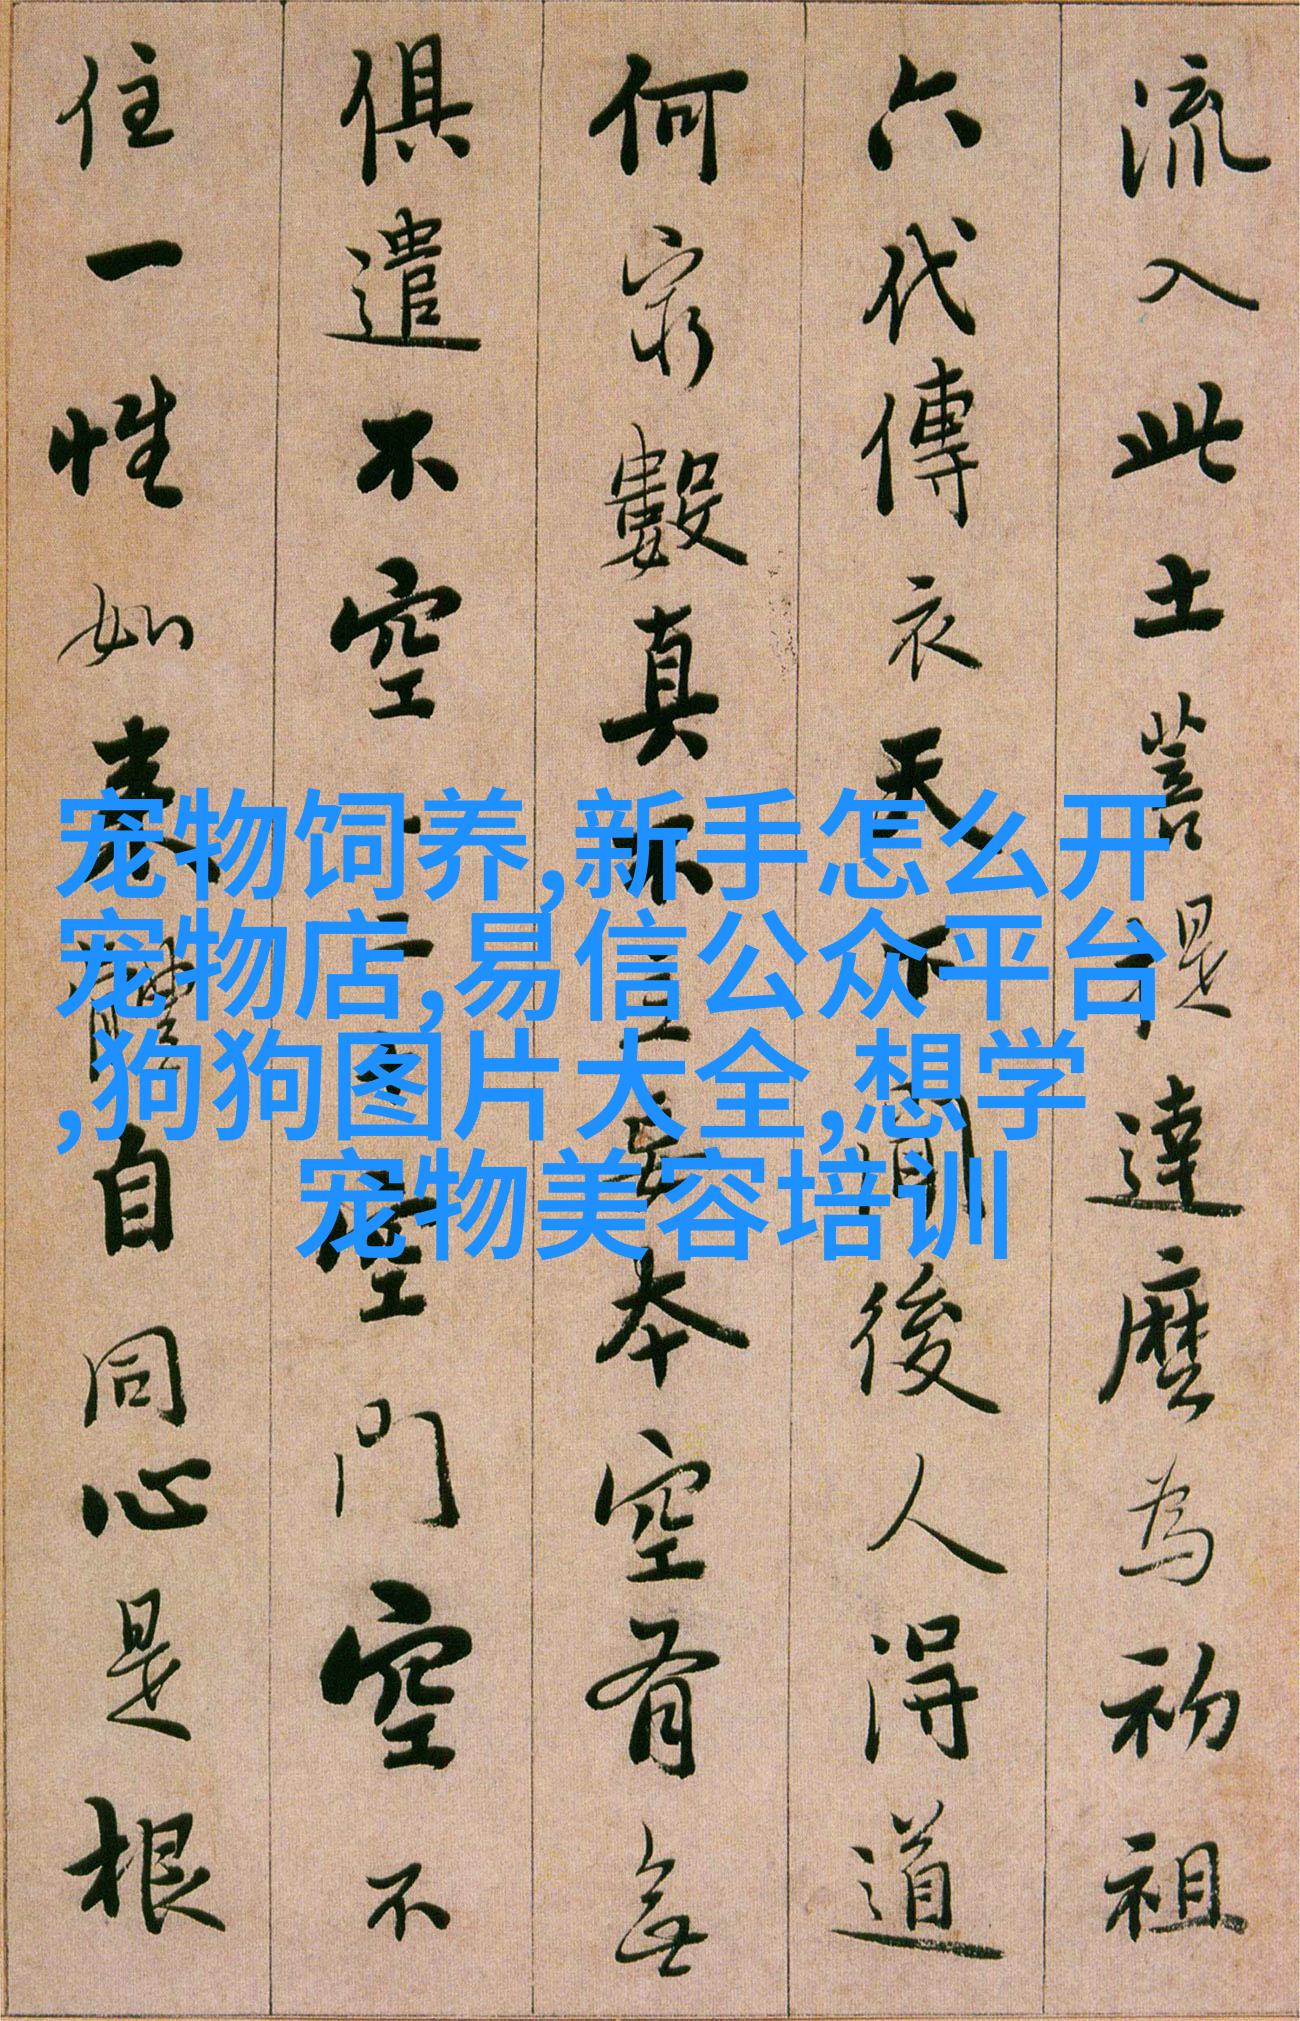 流入此土菩提達麼為初祖
六代傳衣天下聞後人得道
何窮數真不立妄本空有無
俱遣不空二十空門空不
住一性如来體自同心是根
宠物饲养,新手怎么开
宠物店,易信公众平台
,狗狗图片大全,想学
宠物美容培训